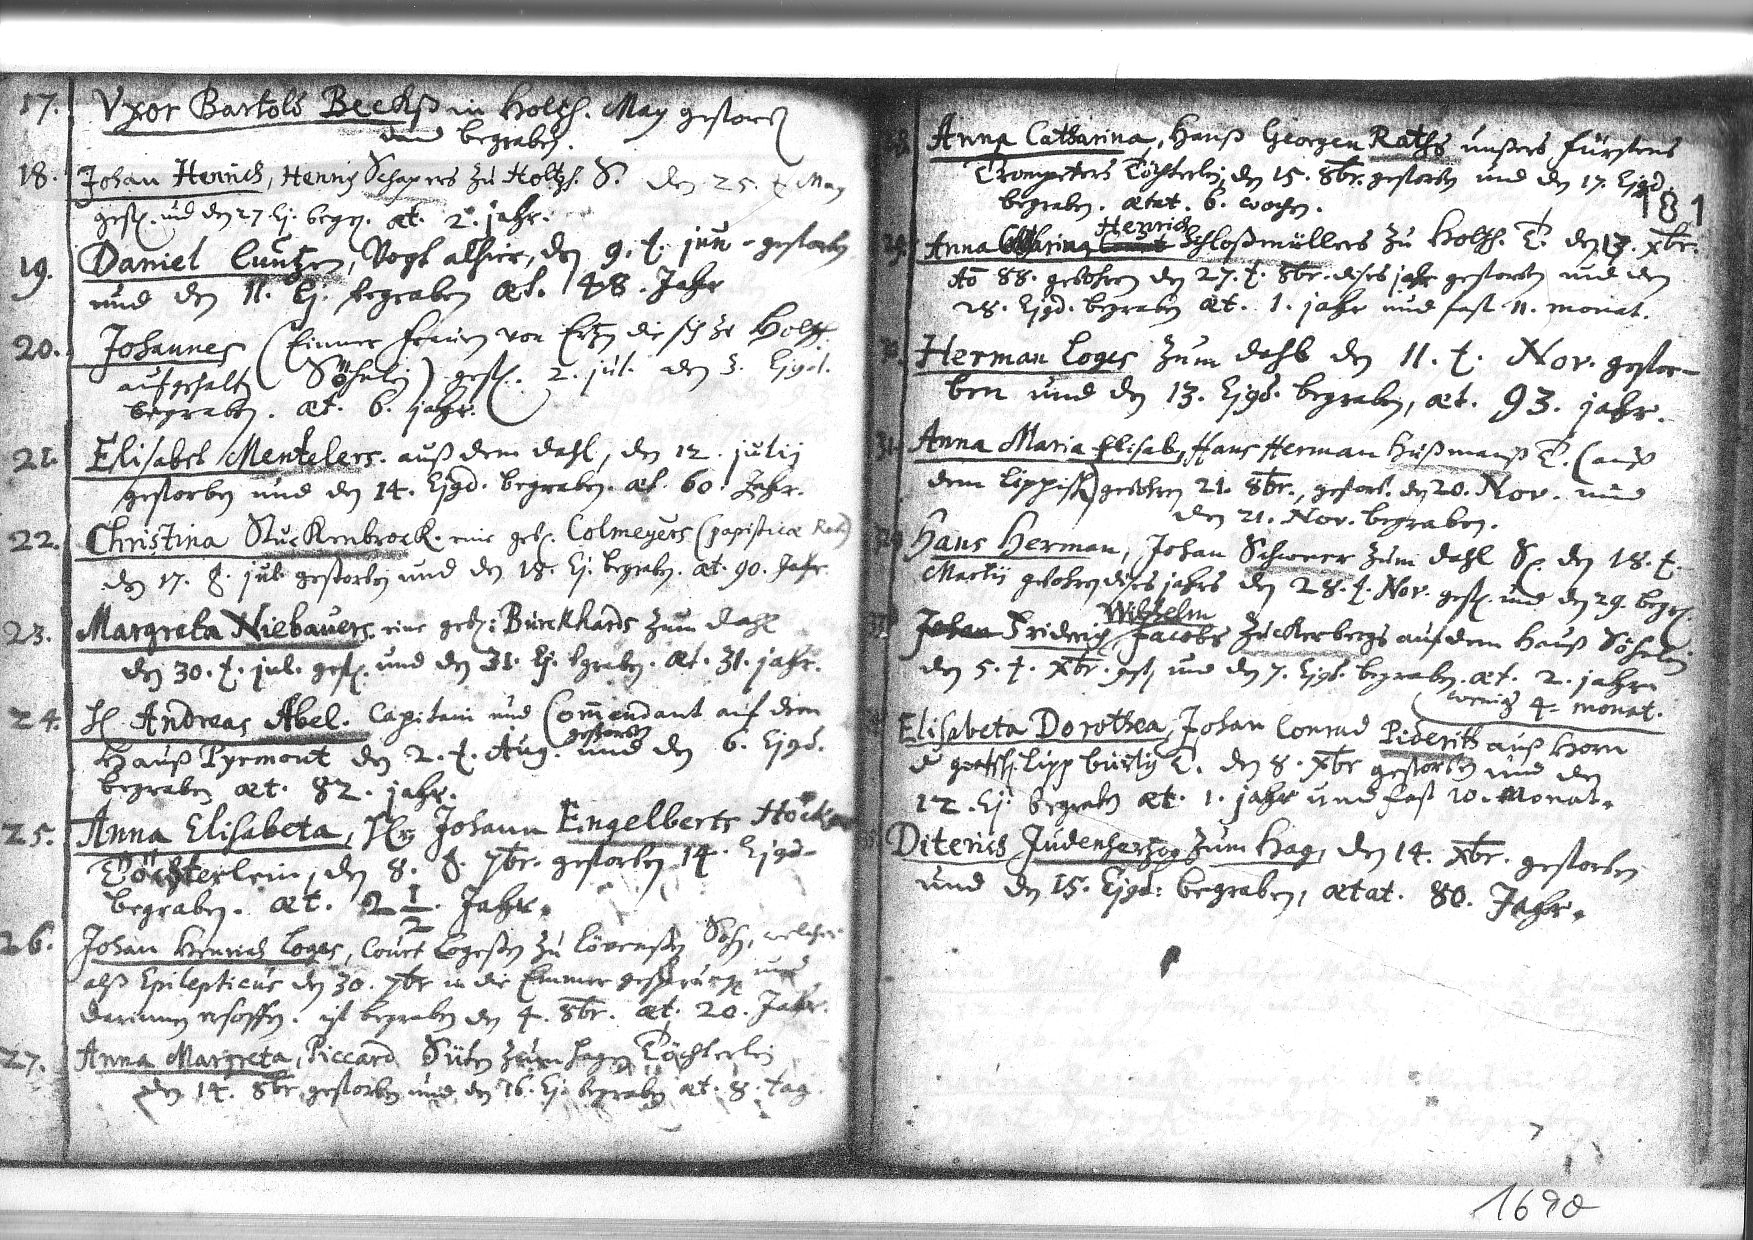 17. Vxor Bartols Beckß in Holtzh. May gestorb.
und begraben.
18. Johan Henrich, Henrich Schapers zu Holtzh. S. den 25. t. May
gest. und den 27. Ej. begr. æt. 2. jahr.
19. Daniel Cuntzen, Vogt alhier, den 9. t. jun. gestorben
und den 11. Ej. begraben æt. 48. Jahr
20. Johannes (Einner frauen von die sich zu Holtzh.
aufgehalten Söhnlein) gest. 2. jul. den 3. Ejgd.
begraben. æt. 6. jahr.
21. Elisabet Mentelers. auß dem dahl, den 12. julij
gestorben und den 14. Ejgd. begraben. æt. 60. Jahr.
22. Christina Stuckenbrock. eine geb. Colmeyers (papisticæ Rel.)
den 17. jul. gestorben und den 18. Ej. begraben. æt. 90. Jahr.
23. Margreta Niebauers. eine geb: Burckhards zum dahl
den 30. t. jul. gest. und den 31. Ej. begraben. æt. 31. jahr.
24. H Andreas Abel. Capitain und Commendant auf dem
Hauß Pyrmont den 2. t. Aug. gestorben und den 6. Ejgd.
begraben æt. 82. jahr.
25. Anna Elisabeta, Johann Engelberts
Töchterlein, den 8. 7br. gestorben 14. Ejgd.
begraben. æt. 2 1/2. Jahr.
26. Johan Henrich Loges, Court Logeßen zu Lövenßen Sohn, welcher
alß Epilepticus den 30. 7br in die Emmer und
darinnen ersoffen. ist begraben den 4. 8br. æt. 20. Jahr.
27. Anna Margreta, Piccard Süten zum Hagen Töchterlein
den 14. 8br. gestorben und den 16. Ej. begraben æt. 8. tag.
Anna Catharina, Hanß Georgen Raths unßers Fürstens
Trompeters Töchterlein, den 15. 8br. gestorben und den 17. Ejgd.
begraben. ætat. 6. wochen.
181
29. Anna Catharina Henrich Schloßmüllers zu Holtzh. T. den 13. Xbr.
Ao 88. gebohren den 27. t. 8br. dißes jahr gestorben und den
28. Ejgd. begraben æt. 1. jahr und fast 11. monat.
Herman Loges zum dahl den 11. t. Nov. gestor-
ben und den 13. Ejgd. begraben, æt. 93. jahr.
31. Anna Maria Elisab, Hans Herman Hußmanß T. (auß
dem Lippisch) gebohren 21. 8br., gestorb. den 20. Nov. und
den 21. Nov. begraben.
Hans Herman, Johan Schwer zum dahl S. den 18. t.
Martij gebohren dißes jahrs den 28. t. Nov. gest. und den 29. begr.
Johan Friderich Wilhelm Jacobs Zuckerbergs auf dem Hauß Söhnlein
den 5. t. Xbr. gest. und den 7. Ejgd. begraben. æt. 2. jahr
wenig 4. monat.
Elisabeta Dorothea, Johan Conrad Piderits auß Horn
Lipp bürtig T. den 8. Xbr gestorben und den
12. Ej. begraben æt. 1. jahr und fast 10. Monat.
Diterich Judenhertzog zum Hag, den 14. Xbr. gestorben
und den 15. Ejgd: begraben, ætat. 80. Jahr.
1690